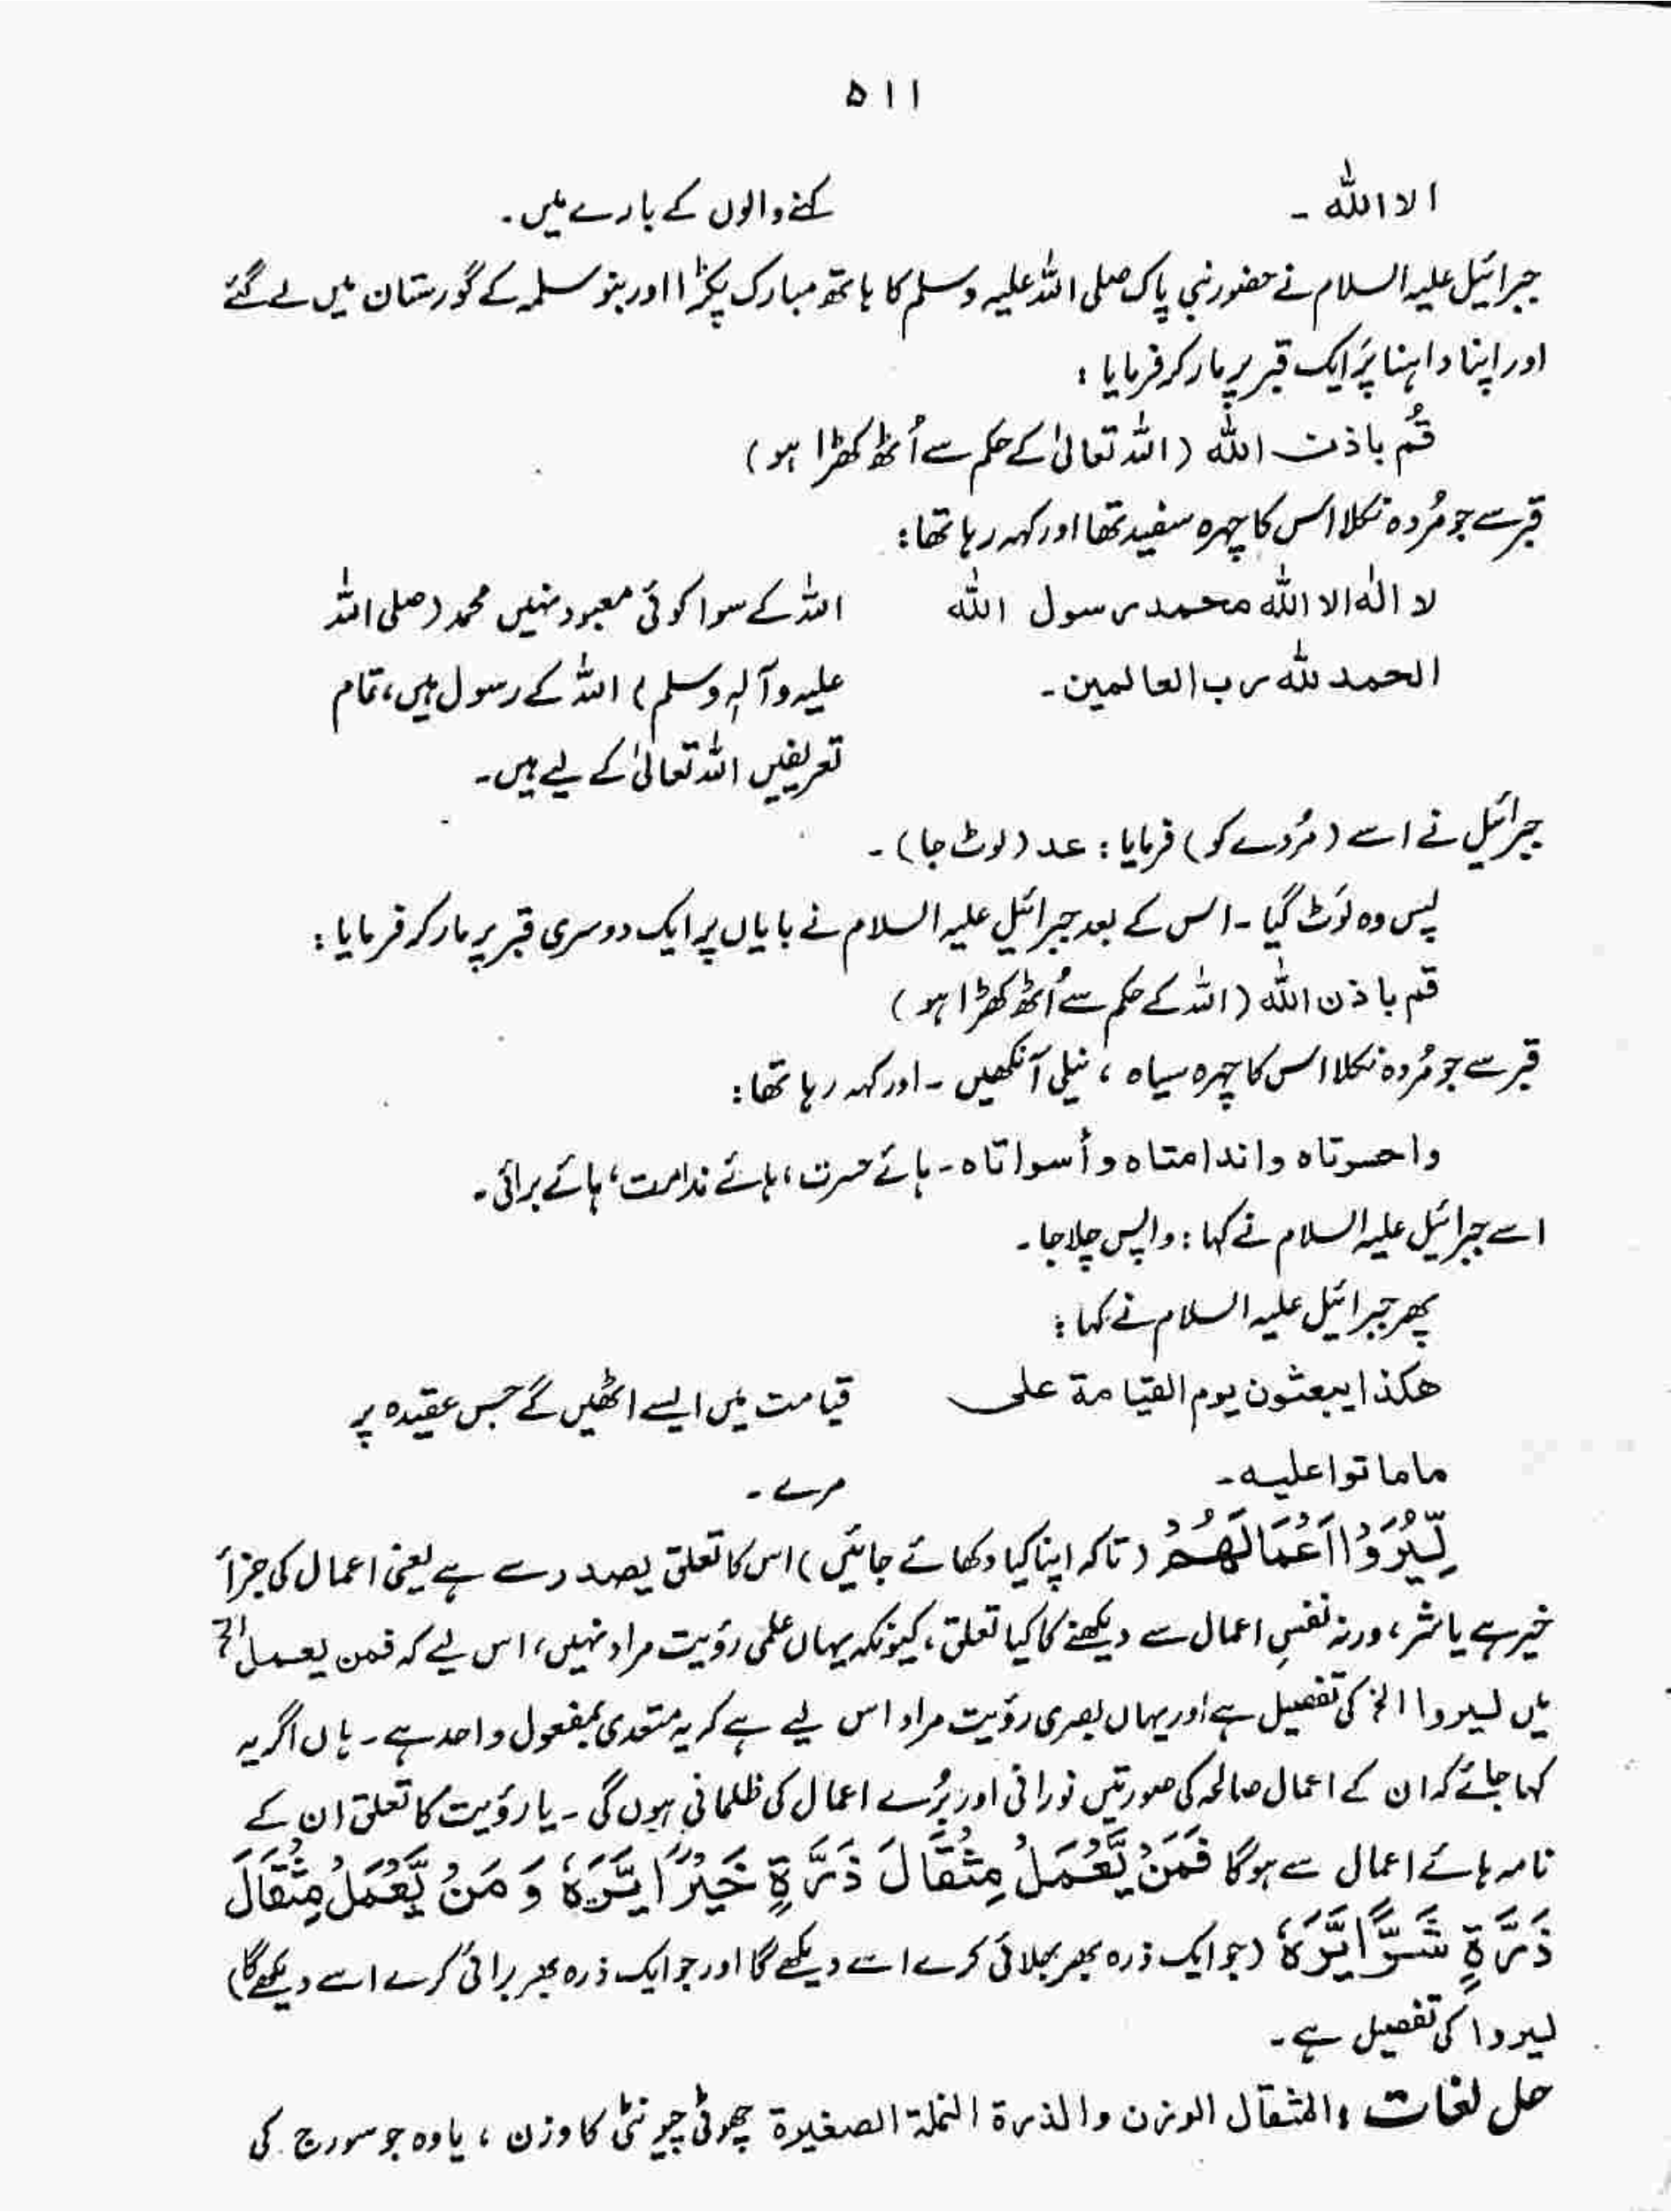 ۵۱۱
الا الله ۔ کہنے والوں کے بارے میں۔
جبرائیل علیہ السلام نے حضور نبی پاک صلی اللہ علیہ وسلم کا ہاتھ مبارک پکڑا اور بنو سلمہ کے گورستان میں لے گئے
اور اپنا داہنا پَر ایک قبر پر مار کر فرمایا :
قُم باذن الله (اللہ تعالیٰ کے حکم سے اُٹھ کھڑا ہو)
قبر سے جو مُردہ نکلا اس کا چہرہ سفید تھا اور کہہ رہا تھا:
لا الٰه الا الله محمد رسول الله اللہ کے سوا کوئی معبود نہیں محمد (صلی اللہ
الحمد لله رب العالمین۔ علیہ وآلہٖ وسلم) اللہ کے رسول ہیں، تمام
تعریفیں اللہ تعالیٰ کے لیے ہیں۔
جبرائیل نے اسے (مُردے کو) فرمایا : عد (لوٹ جا) ۔
پس وہ لوٹ گیا ۔ اس کے بعد جبرائیل علیہ السلام نے بایاں پر ایک دوسری قبر پر مار کر فرمایا :
قم باذن الله (اللہ کے حکم سے اُٹھ کھڑا ہو)
قبر سے جو مُردہ نکلا اس کا چہرہ سیاہ ، نیلی آنکھیں ۔ اور کہہ رہا تھا :
واحسرتاه واندامتاه وأسواتاه ۔ ہائے حسرت ، ہائے ندامت ، ہائے برائی ۔
اسے جبرائیل علیہ السلام نے کہا : واپس چلا جا ۔
پھر جبرائیل علیہ السلام نے کہا :
هكذا يبعثون يوم القيامة على قیامت میں ایسے اٹھیں گے جس عقیدہ پر
ماماتوا عليه۔ مرے ۔
لِّيُرَوْا اَعْمَالَهُمْ (تاکہ اپنا کیا دکھائے جائیں) اس کا تعلق یصدر سے ہے یعنی اعمال کی جزأ
خیر ہے یا شر ، ورنہ نفسِ اعمال سے دیکھنے کا کیا تعلق ، کیونکہ یہاں علمی رؤیت مراد نہیں ، اس لیے کہ فمن یعمل الخ
میں لیروا الخ کی تفصیل ہے اور یہاں بصری رؤیت مراد اس لیے ہے کہ یہ متعدی بمفعول واحد ہے ۔ ہاں اگر یہ
کہا جائے کہ ان کے اعمال صالحہ کی صورتیں نورانی اور بُرے اعمال کی ظلمانی ہوں گی ۔ یا رؤیت کا تعلق ان کے
نامہ ہائے اعمال سے ہوگا فَمَنْ يَّعْمَلْ مِثْقَالَ ذَرَّةٍ خَيْرًا يَّرَهٗ وَ مَنْ يَّعْمَلْ مِثْقَالَ
ذَرَّةٍ شَرًّا يَّرَهٗ (جو ایک ذرہ بھر بھلائی کرے اسے دیکھے گا اور جو ایک ذرہ بھر برائی کرے اسے دیکھے گا)
لیروا کی تفصیل ہے ۔
حل لغات : المثقال الوزن والذرة النملة الصغيرة چھوٹی چیونٹی کا وزن ، یا وہ جو سورج کی